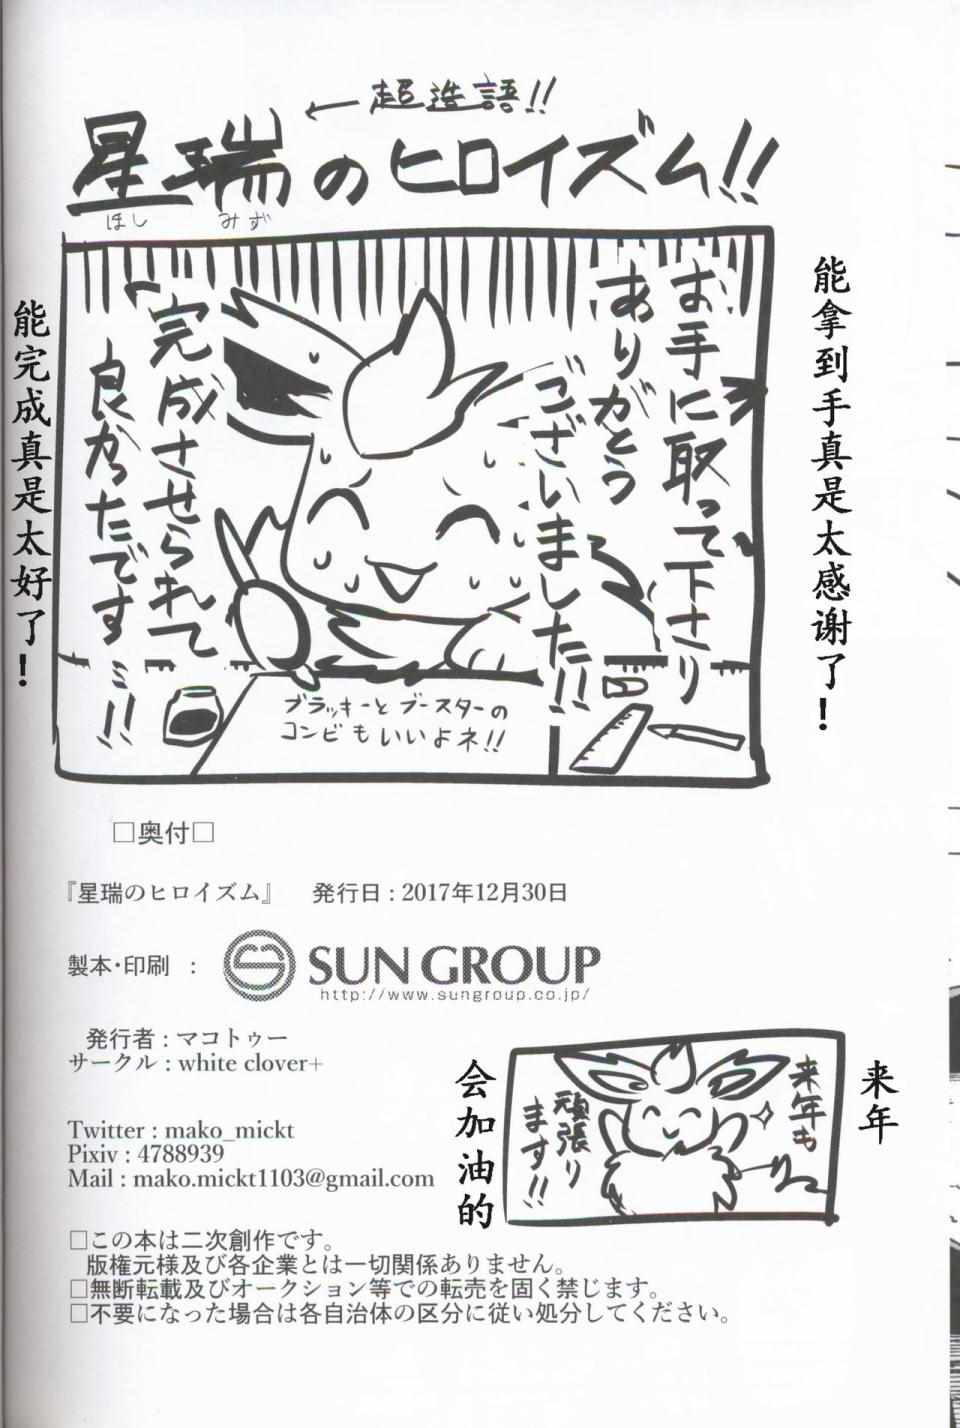 ←超造語!!
星瑞のヒロイズム!!
ほし みず
お手に取って下さり
ありがとう
ございました!!
完成させられて
良かったです…!!
能拿到手真是太感谢了！
能完成真是太好了！
ブラッキーとブースターの
コンビもいいよネ!!
□奥付□
『星瑞のヒロイズム』 発行日：2017年12月30日
製本・印刷 ： SUN GROUP
http://www.sungroup.co.jp/
発行者：マコトゥー
サークル：white clover+
Twitter : mako_mickt
Pixiv : 4788939
Mail : mako.mickt1103@gmail.com
来年も
頑張り
ます!!
来年
会加油的
□この本は二次創作です。
版権元様及び各企業とは一切関係ありません。
□無断転載及びオークション等での転売を固く禁じます。
□不要になった場合は各自治体の区分に従い処分してください。